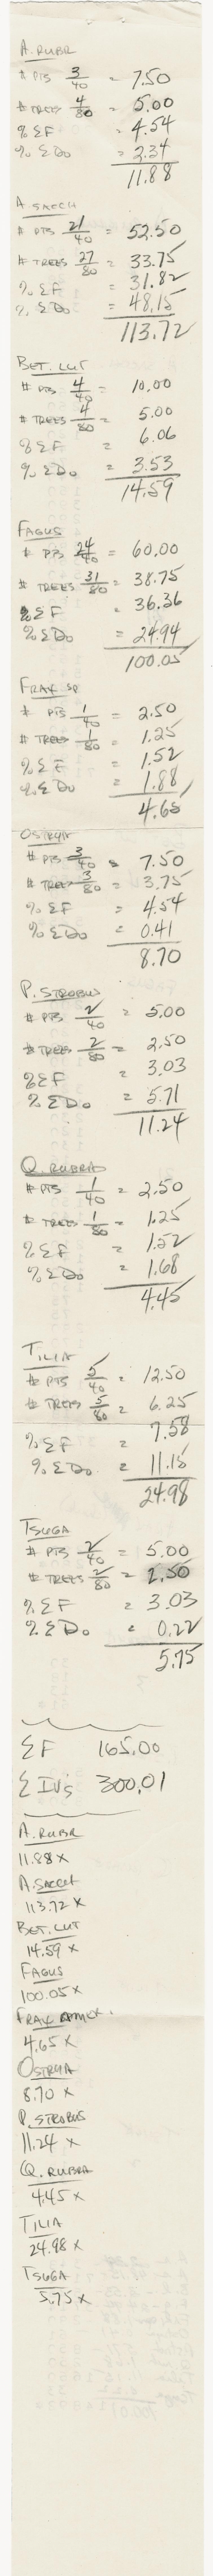 A. RUBR
# PTS 3/40 = 7.50
# TREES 4/80 = 5.00
% ΣF = 4.54
% ΣDo = 2.34
11.88
A SACCH
# PTS 21/40 = 52.50
# TREES 27/80 = 33.75
% ΣF = 31.82
% ΣDo = 48.15
113.72
BET. LUT
# PTS 4/40 = 10.00
# TREES 4/80 = 5.00
% ΣF = 6.06
% ΣDo = 3.53
14.59
FAGUS
# PTS 24/40 = 60.00
# TREES 31/80 = 38.75
% ΣF = 36.36
% ΣDo = 24.94
100.05
FRAX SP
# PTS 1/40 = 2.50
# TREES 1/80 = 1.25
% ΣF = 1.52
% ΣDo = 1.88
4.65
OSTRYA
# PTS 3/40 = 7.50
# TREES 3/80 = 3.75
% ΣF = 4.54
% ΣDo = 0.41
8.70
P. STROBUS
# PTS 2/40 = 5.00
# TREES 2/80 = 2.50
% ΣF = 3.03
% ΣDo = 5.71
11.24
Q. RUBRA
# PTS 1/40 = 2.50
# TREES 1/80 = 1.25
% ΣF = 1.52
% ΣDo = 1.68
4.45
TILIA
# PTS 5/40 = 12.50
# TREES 5/80 = 6.25
% ΣF = 7.58
% ΣDo = 11.15
24.98
TSUGA
# PTS 2/40 = 5.00
# TREES 2/80 = 2.50
% ΣF = 3.03
% ΣDo = 0.22
5.75
ΣF 165.00
Σ IV's 300.01
A. RUBR
11.88 x
A. SACCH
113.72 x
BET. LUT
14.59 x
FAGUS
100.05 x
FRAX
4.65 x
OSTRYA
8.70 x
P. STROBUS
11.24 x
Q. RUBRA
4.45 x
TILIA
24.98 x
TSUGA
5.75 x